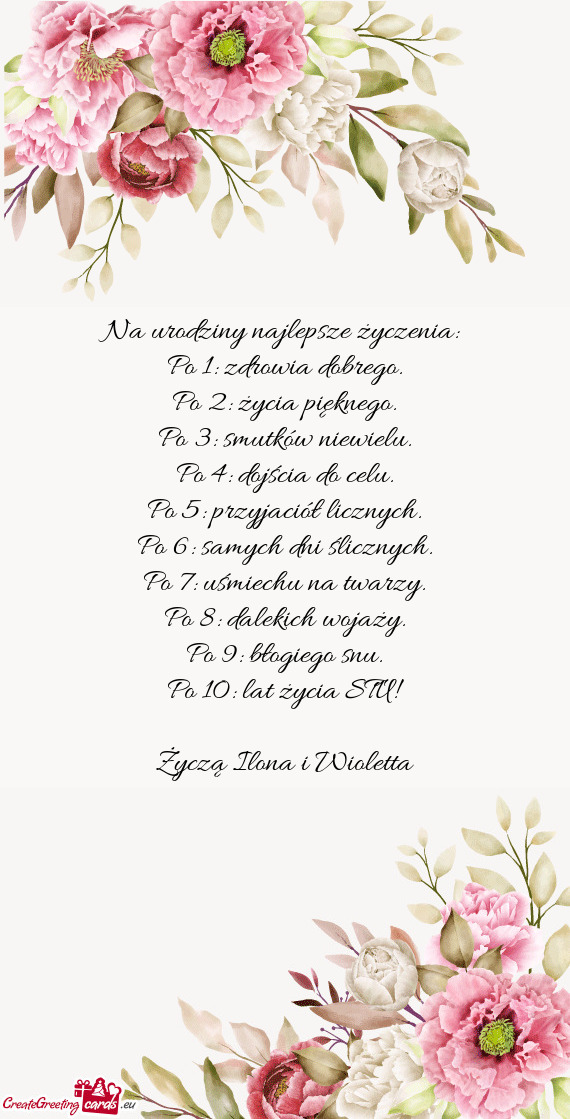 Na urodziny najlepsze życzenia:
Po 1: zdrowia dobrego.
Po 2: życia pięknego.
Po 3: smutków niewielu.
Po 4: dojścia do celu.
Po 5: przyjaciół licznych.
Po 6: samych dni ślicznych.
Po 7: uśmiechu na twarzy.
Po 8: dalekich wojaży.
Po 9: błogiego snu.
Po 10: lat życia STU!
Życzą Ilona i Wioletta
CreateGreeting cards .eu